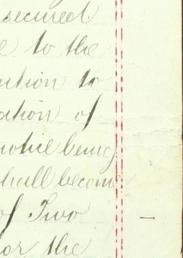 secured
e to the
ution to
ation of
notice being
shall become
of Two
or the